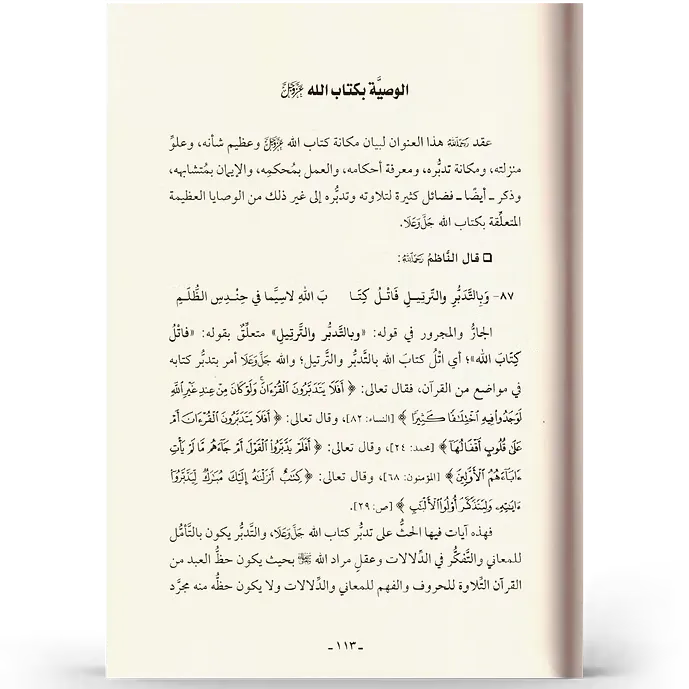 الوصيَّة بكتاب الله عَزَّوَجَلَّ
عقد رَحِمَهُ اللَّهُ هذا العنوان لبيان مكانة كتاب الله عَزَّوَجَلَّ وعظيم شأنه، وعلوِّ
منزلته، ومكانة تدبُّره، ومعرفة أحكامه، والعمل بمُحكمِه، والإيمان بمُتشابهه،
وذكر ـ أيضًا ـ فضائل كثيرة لتلاوته وتدبُّره إلى غير ذلك من الوصايا العظيمة
المتعلِّقة بكتاب الله جَلَّ وَعَلَا.
❑ قال النَّاظمُ رَحِمَهُ اللَّهُ:
٨٧- وَبِالتَّدَبُّرِ والتَّرتِيـلِ فَاتْـلُ كِتَـا بَ اللهِ لاسِيَّما في حِنْـدِسِ الظُّلَـمِ
الجارُّ والمجرور في قوله: «وبالتَّدبُّر والتَّرتِيلِ» متعلِّقٌ بقوله: «فاتْلُ
كِتَابَ الله»؛ أي اتْلُ كتابَ الله بالتَّدبُّر والتَّرتيل؛ والله جَلَّ وَعَلَا أمر بتدبُّر كتابه
في مواضع من القرآن، فقال تعالى: ﴿ أَفَلَا يَتَدَبَّرُونَ ٱلْقُرْءَانَ وَلَوْ كَانَ مِنْ عِندِ غَيْرِ ٱللَّهِ
لَوَجَدُوا۟ فِيهِ ٱخْتِلَـٰفًا كَثِيرًا ﴾ [النساء: ٨٢]، وقال تعالى: ﴿ أَفَلَا يَتَدَبَّرُونَ ٱلْقُرْءَانَ أَمْ
عَلَىٰ قُلُوبٍ أَقْفَالُهَآ ﴾ [محمد: ٢٤]، وقال تعالى: ﴿ أَفَلَمْ يَدَّبَّرُوا۟ ٱلْقَوْلَ أَمْ جَآءَهُم مَّا لَمْ يَأْتِ
ءَابَآءَهُمُ ٱلْأَوَّلِينَ ﴾ [المؤمنون: ٦٨]، وقال تعالى: ﴿ كِتَـٰبٌ أَنزَلْنَـٰهُ إِلَيْكَ مُبَـٰرَكٌ لِّيَدَّبَّرُوٓا۟
ءَايَـٰتِهِۦ وَلِيَتَذَكَّرَ أُو۟لُوا۟ ٱلْأَلْبَـٰبِ ﴾ [ص: ٢٩].
فهذه آيات فيها الحثُّ على تدبُّر كتاب الله جَلَّ وَعَلَا، والتَّدبُّر يكون بالتَّأمُّل
للمعاني والتَّفكُّر في الدِّلالات وعقلِ مراد الله بحيث يكون حظُّ العبد من
القرآن التِّلاوة للحروف والفهم للمعاني والدِّلالات ولا يكون حظُّه منه مجرَّد
ـ ١١٣ ـ